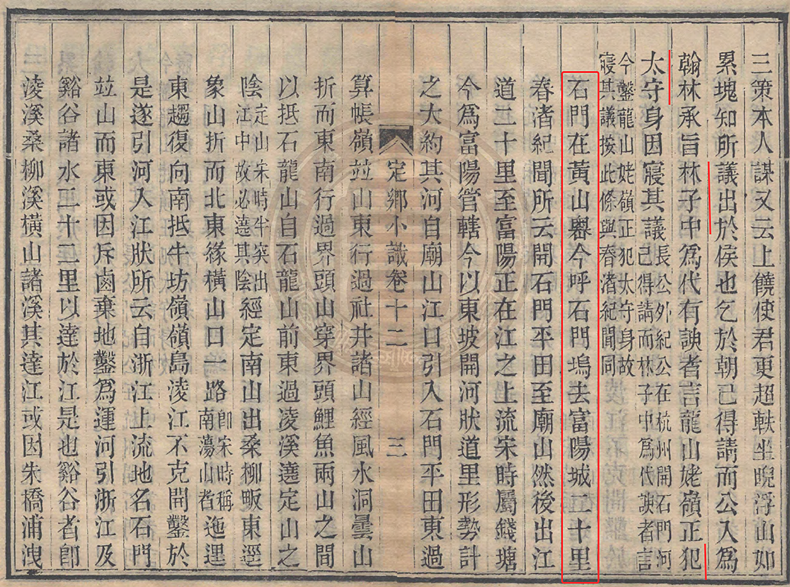 三策本人謀又云上饒使君更超軼坐睨浮山如
累塊知所議出於侯也乞於朝已得請而公入為
翰林承旨林子中為代有諛者言龍山姥嶺正犯
太守身因寢其議長公外紀公在杭州開石門河已得請而林子中為代諛者言
今鑿龍山姥嶺正犯太守身故寢其議按此條與春渚紀聞同
石門在黃山嶴今呼石門塢去富陽城二十里
春渚紀聞所云開石門平田至廟山然後出江
道二十里至富陽正在江之上流宋時屬錢塘
今為富陽管轄今以東坡開河狀道里形勢計
之大約其河自廟山江口引入石門平田東過
定鄉小識卷十二 三
算帳嶺竝山東行過社井諸山經風水洞曇山
折而東南行過界頭山穿界頭鯉魚兩山之間
以抵石龍山自石龍山前東過淩溪遶定山之
陰定山宋時半突出江中故必遶其陰經定南山出桑柳畈東逕
象山折而北東緣橫山口一路即宋時稱南蕩山者迤邐
東趨復向南抵牛坊嶺嶺島淩江不克開鑿於
是遂引河入江狀所云自浙江上流地名石門
竝山而東或因斥鹵棄地鑿為運河引浙江及
谿谷諸水二十二里以達於江是也谿谷者即
淩溪桑柳溪橫山諸溪其達江或因朱橋浦洩